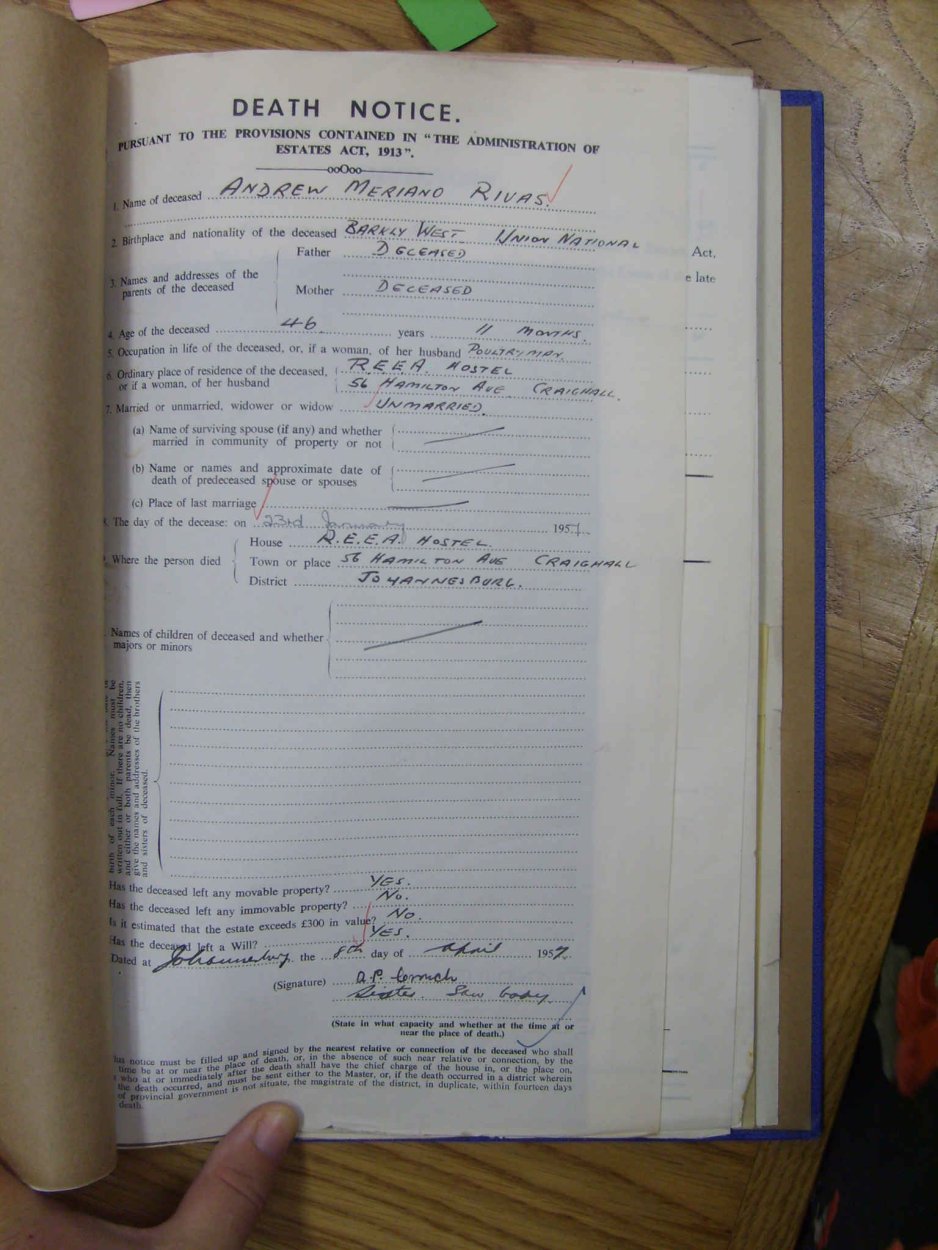 DEATH NOTICE.
PURSUANT TO THE PROVISIONS CONTAINED IN "THE ADMINISTRATION OF
ESTATES ACT, 1913".
ooOoo
1. Name of deceased ANDREW MERIANO RIVAS.
2. Birthplace and nationality of the deceased BARKLY WEST UNION NATIONAL
3. Names and addresses of the parents of the deceased
Father DECEASED
Mother DECEASED
4. Age of the deceased 46 years 11 MONTHS.
5. Occupation in life of the deceased, or, if a woman, of her husband POULTRYMAN.
6. Ordinary place of residence of the deceased, R.E.E.A. HOSTEL
or if a woman, of her husband 56 HAMILTON AVE CRAIGHALL.
7. Married or unmarried, widower or widow UNMARRIED.
(a) Name of surviving spouse (if any) and whether
married in community of property or not
(b) Name or names and approximate date of
death of predeceased spouse or spouses
(c) Place of last marriage
8. The day of the decease: on 23rd January 1957.
Where the person died
House R.E.E.A. HOSTEL.
Town or place 56 HAMILTON AVE CRAIGHALL
District JOHANNESBURG.
Names of children of deceased and whether
majors or minors
birth of each minor. Names must be
written out in full. If there are no children,
and either or both parents be dead, then
give the names and addresses of the brothers
and sisters of deceased.
Has the deceased left any movable property? YES.
Has the deceased left any immovable property? No.
Is it estimated that the estate exceeds £300 in value? No.
Has the deceased left a Will? YES.
Dated at Johannesburg, the 8th day of April 1957.
(Signature) a.P.
Sister. Saw body.
(State in what capacity and whether at the time at or
near the place of death.)
notice must be filled up and signed by the nearest relative or connection of the deceased who shall
time be at or near the place of death, or, in the absence of such near relative or connection, by the
who at or immediately after the death shall have the chief charge of the house in, or the place on,
the death occurred, and must be sent either to the Master, or, if the death occurred in a district wherein
of provincial government is not situate, the magistrate of the district, in duplicate, within fourteen days
death.
Act,
e late